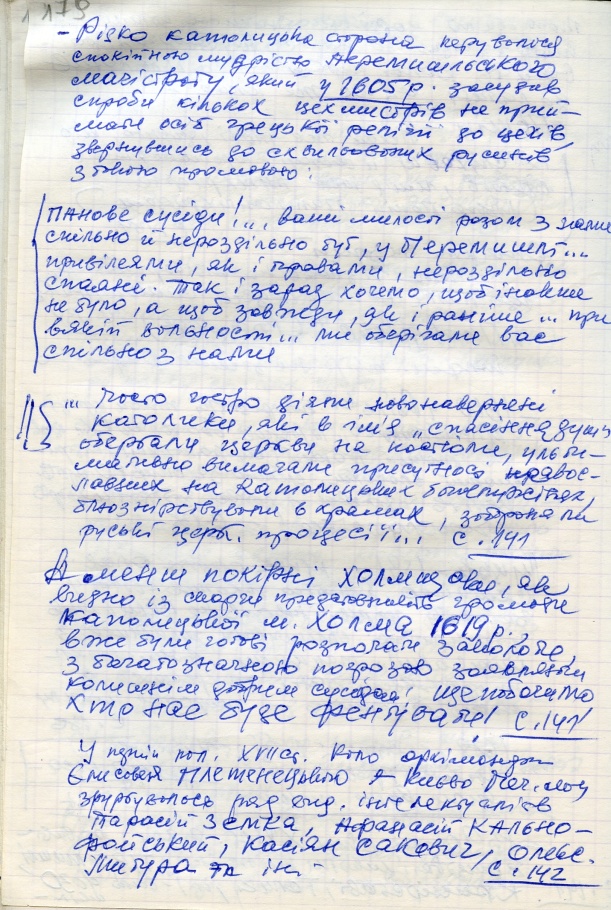 1179
- Рідко католицька сторона керувалася
спокійною мудрістю Перемишльського
магістрату, який у 1605 р. засудив
спроби кількох цехмистрів не прий-
мати осіб грецької релігії до цехів,
звернувшись до схвильованих русинів
з такою промовою:
Панове сусіди!... ваші милості разом з нами
спільно й нероздільно тут, у Перемишлі...
привілеями, як і правами, нероздільно
спаяні. Так і зараз хочемо, щоб інакше
не було, а щоб завжди, як і раніше... при
всякій вольності... ми оберігали вас
спільно з нами
... Часто гостро діяли новонавернені
католики, які в ім'я "спасіння душі"
обертали церкви на костьоли, ульти-
мативно вимагали присутності правос-
лавних на католицьких богослужіннях,
блюзнірствували в храмах, забороняли
руські церк. процесії... с. 141
А менш покірні холмщаки, як
видно із скарги представників громади
католицької м. Холма 1619 р.,
вже були готові розпочати заколот,
з багатозначною погрозою заявляючи
колишнім добрим сусідам: ще побачимо
хто нас буде рентувати! с. 141
У першій пол. XVII ст. коло архімандр.
Єлисея Плетенецького в Києво Печ. мон.
згуртувалось ряд вид. інтелектуалів
Тарасій Земка, Афанасій Кально-
фойський, Касіян Сакович, Олекс.
Митура та ін. с. 142